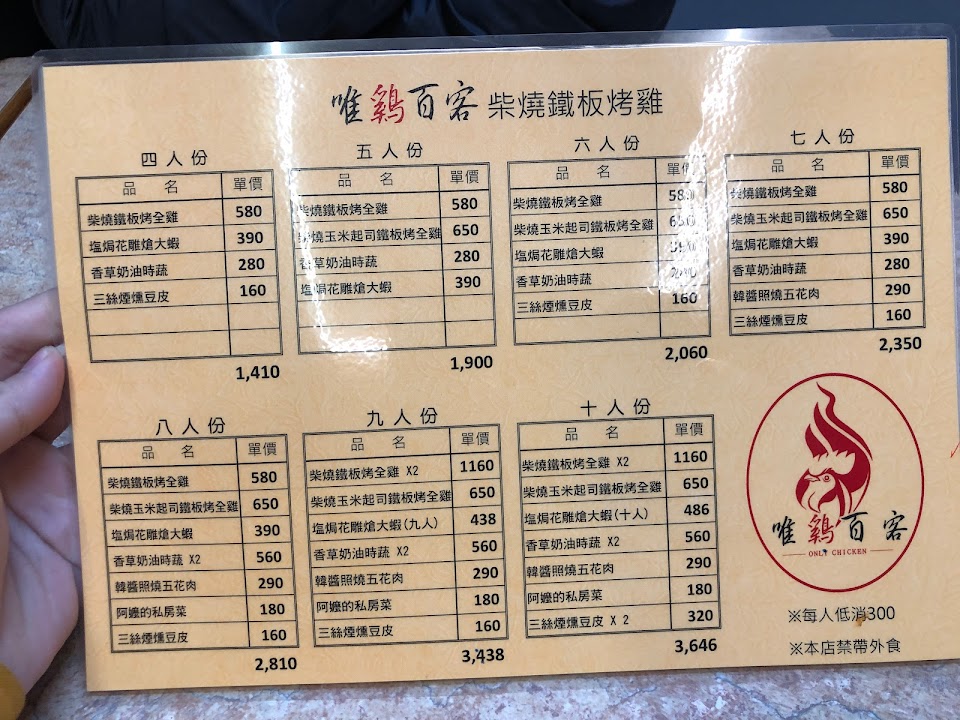 唯鷄百客 柴燒鐵板烤雞
四人份
品 名 單價
柴燒鐵板烤全雞 580
塩焗花雕熗大蝦 390
香草奶油時蔬 280
三絲煙燻豆皮 160
1,410
五人份
品 名 單價
柴燒鐵板烤全雞 580
柴燒玉米起司鐵板烤全雞 650
香草奶油時蔬 280
塩焗花雕熗大蝦 390
1,900
六人份
品 名 單價
柴燒鐵板烤全雞 580
柴燒玉米起司鐵板烤全雞 650
塩焗花雕熗大蝦 390
香草奶油時蔬
三絲煙燻豆皮 160
2,060
七人份
品 名 單價
柴燒鐵板烤全雞 580
柴燒玉米起司鐵板烤全雞 650
塩焗花雕熗大蝦 390
香草奶油時蔬 280
韓醬照燒五花肉 290
三絲煙燻豆皮 160
2,350
八人份
品 名 單價
柴燒鐵板烤全雞 580
柴燒玉米起司鐵板烤全雞 650
塩焗花雕熗大蝦 390
香草奶油時蔬 X2 560
韓醬照燒五花肉 290
阿嬤的私房菜 180
三絲煙燻豆皮 160
2,810
九人份
品 名 單價
柴燒鐵板烤全雞 X2 1160
柴燒玉米起司鐵板烤全雞 650
塩焗花雕熗大蝦(九人) 438
香草奶油時蔬 X2 560
韓醬照燒五花肉 290
阿嬤的私房菜 180
三絲煙燻豆皮 160
3,438
十人份
品 名 單價
柴燒鐵板烤全雞 X2 1160
柴燒玉米起司鐵板烤全雞 650
塩焗花雕熗大蝦(十人) 486
香草奶油時蔬 X2 560
韓醬照燒五花肉 290
阿嬤的私房菜 180
三絲煙燻豆皮 X 2 320
3,646
唯鷄百客
ONLY CHICKEN
※每人低消300
※本店禁帶外食